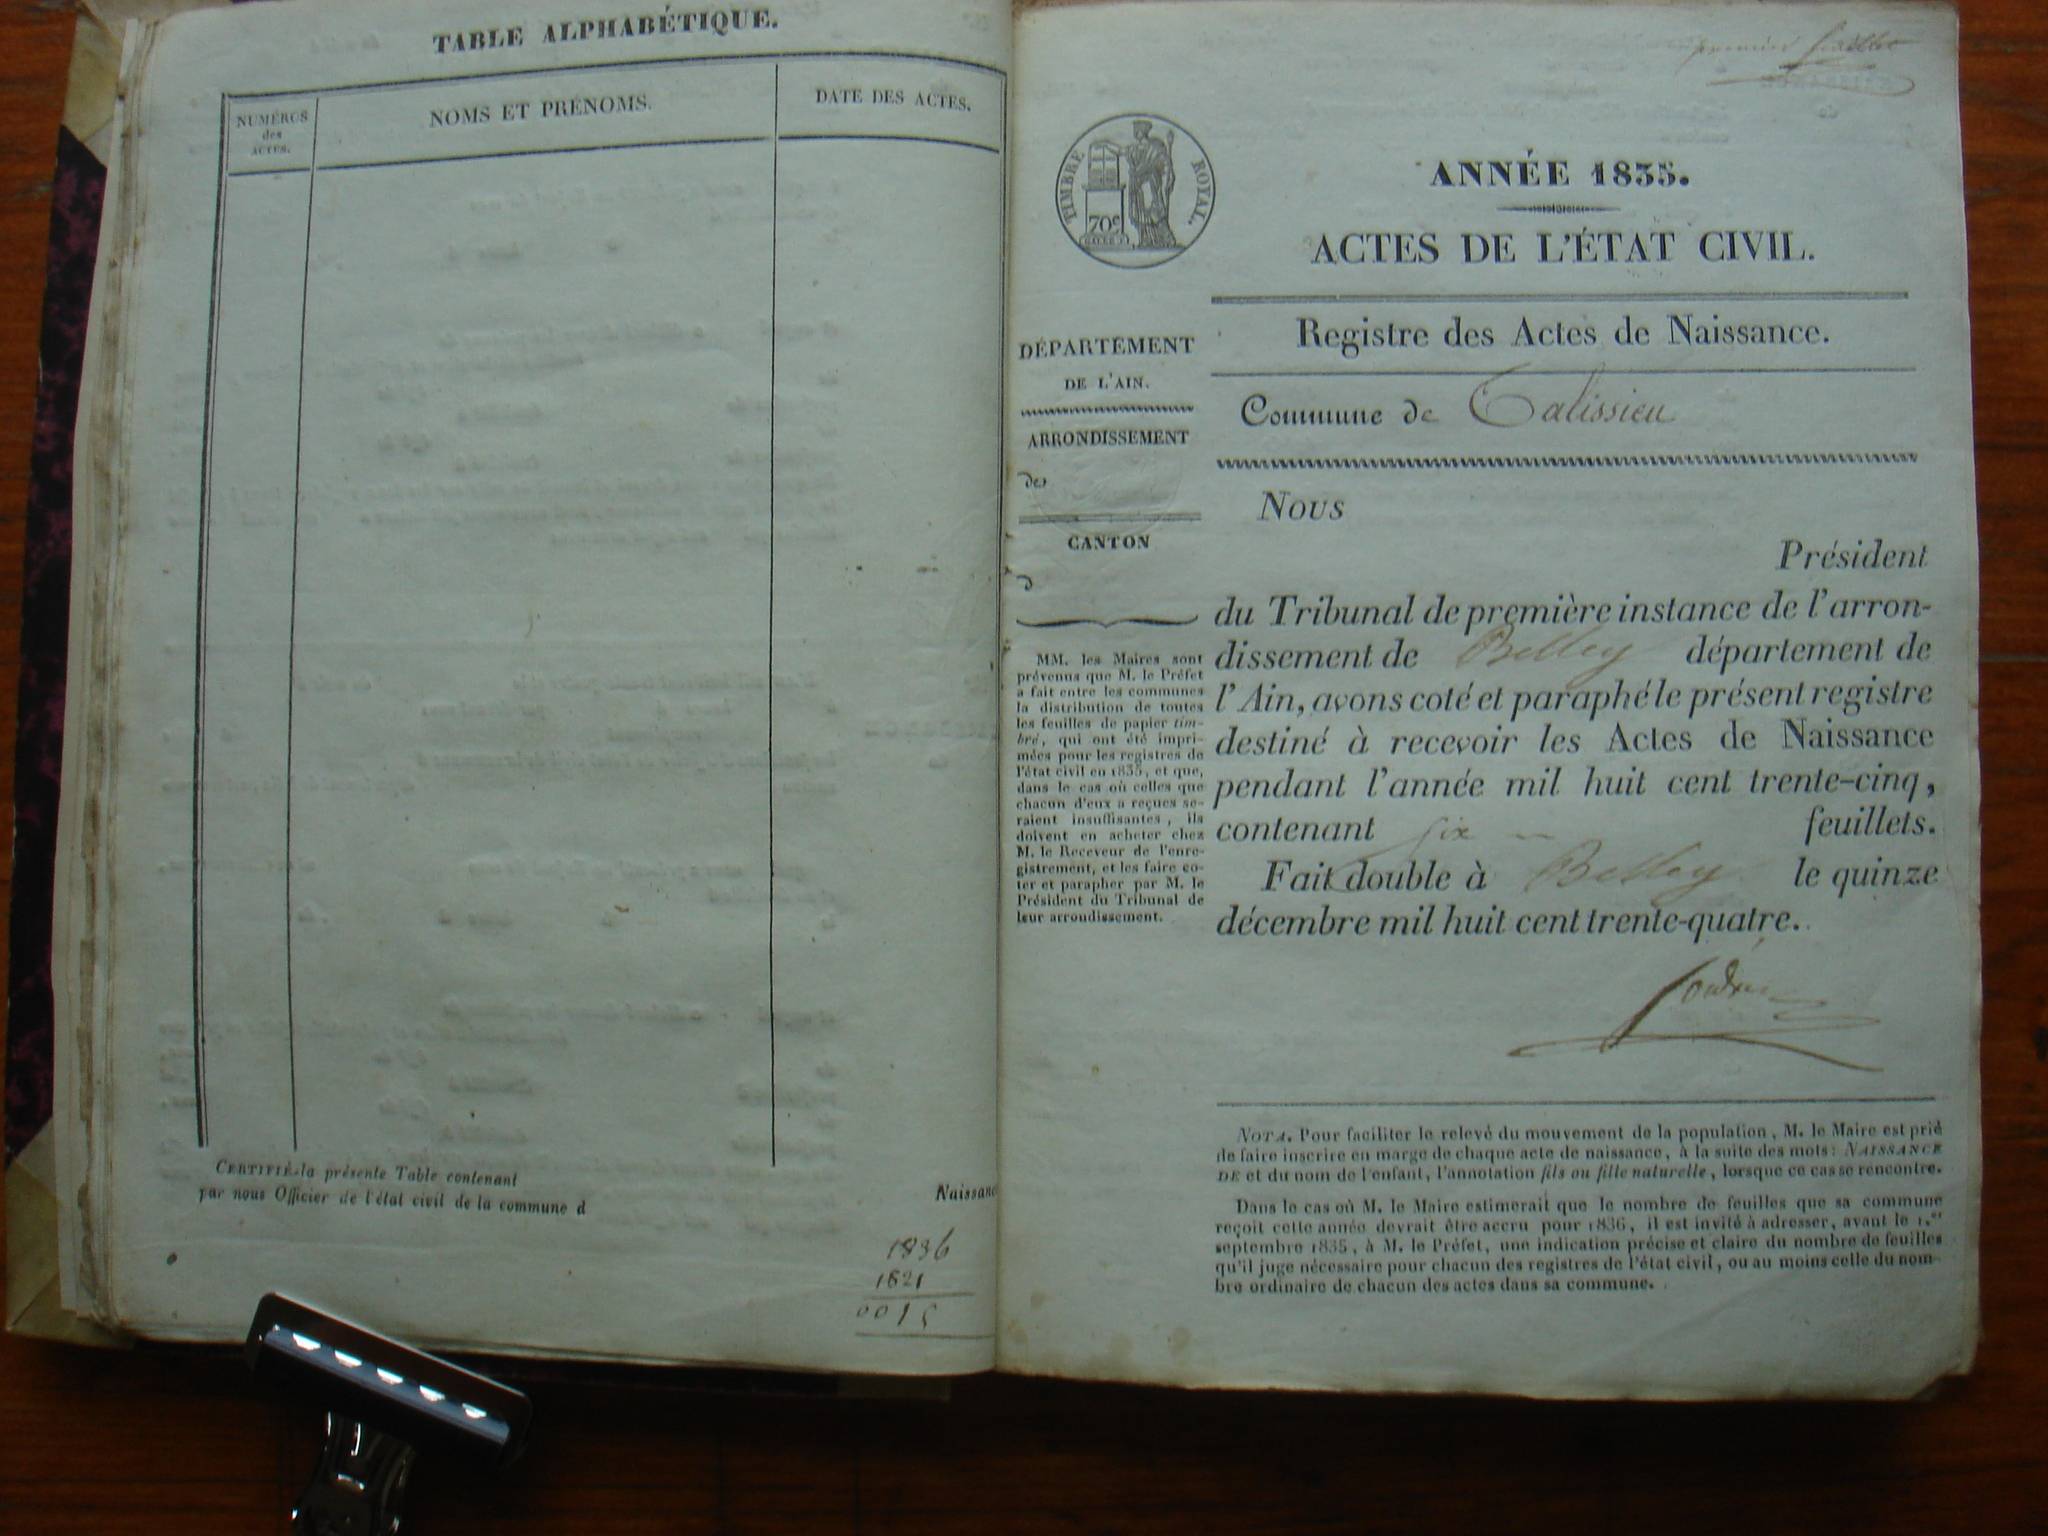 TABLE ALPHABÉTIQUE.
NUMÉROS
des
ACTES.
NOMS ET PRÉNOMS.
DATE DES ACTES.
CERTIFIÉ la présente Table contenant
Naissanc
par nous Officier de l'état civil de la commune d
1836
1821
0015
premier feuillet
TIMBRE ROYAL.
70c
ANNÉE 1835.
ACTES DE L'ÉTAT CIVIL.
Registre des Actes de Naissance.
Commune de Talissieu
DÉPARTEMENT
DE L'AIN.
ARRONDISSEMENT
de
CANTON
d
MM. les Maires sont
prévenus que M. le Préfet
a fait entre les communes
la distribution de toutes
les feuilles de papier tim-
bré, qui ont été impri-
mées pour les registres de
l'état civil en 1835, et que,
dans le cas où celles que
chacun d'eux a reçues se-
raient insuffisantes, ils
doivent en acheter chez
M. le Receveur de l'enre-
gistrement, et les faire co-
ter et parapher par M. le
Président du Tribunal de
leur arroudissement.
Nous
Président
du Tribunal de première instance de l'arron-
dissement de Belley département de
l'Ain, avons coté et paraphé le présent registre
destiné à recevoir les Actes de Naissance
pendant l'année mil huit cent trente-cinq,
contenant six feuillets.
Fait double à Belley le quinze
décembre mil huit cent trente-quatre.
NOTA. Pour faciliter le relevé du mouvement de la population, M. le Maire est prié
de faire inscrire en marge de chaque acte de naissance, à la suite des mots: NAISSANCE
DE et du nom de l'enfant, l'annotation fils ou fille naturelle, lorsque ce cas se rencontre.
Dans le cas où M. le Maire estimerait que le nombre de feuilles que sa commune
reçoit cette année devrait être accru pour 1836, il est invité à adresser, avant le 1.er
septembre 1835, à M. le Préfet, une indication précise et claire du nombre de feuilles
qu'il juge nécessaire pour chacun des registres de l'état civil, ou au moins celle du nom-
bre ordinaire de chacun des actes dans sa commune.